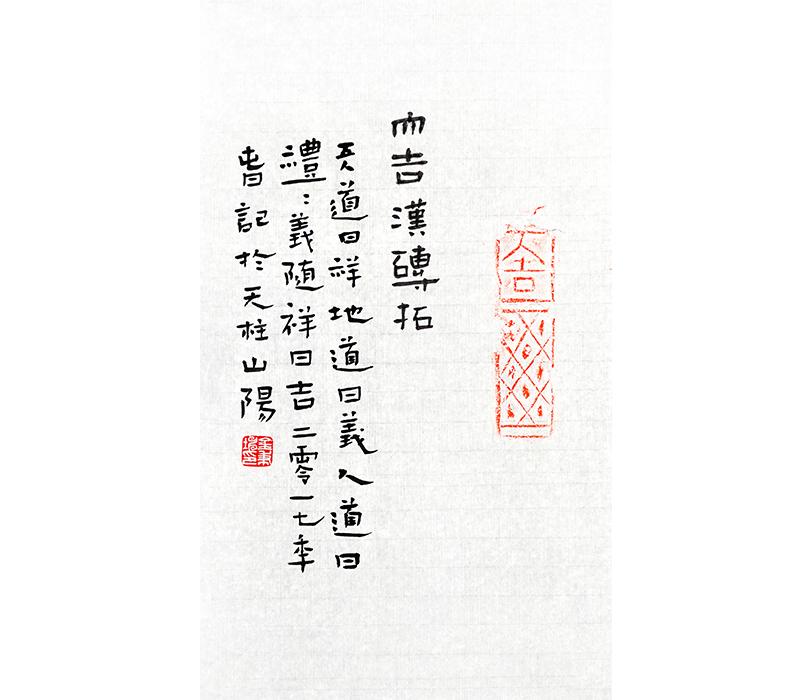 大吉
而吉漢磚拓
天道曰祥地道曰義人道曰
禮禮義隨祥曰吉二零一七年
旾記於天柱山陽